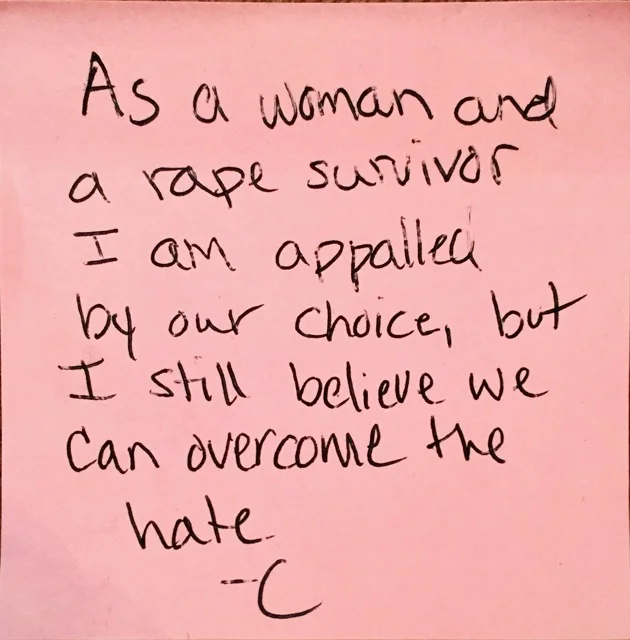 As a woman and
a rape survivor
I am appalled
by our choice, but
I still believe we
can overcome the
hate.
-C